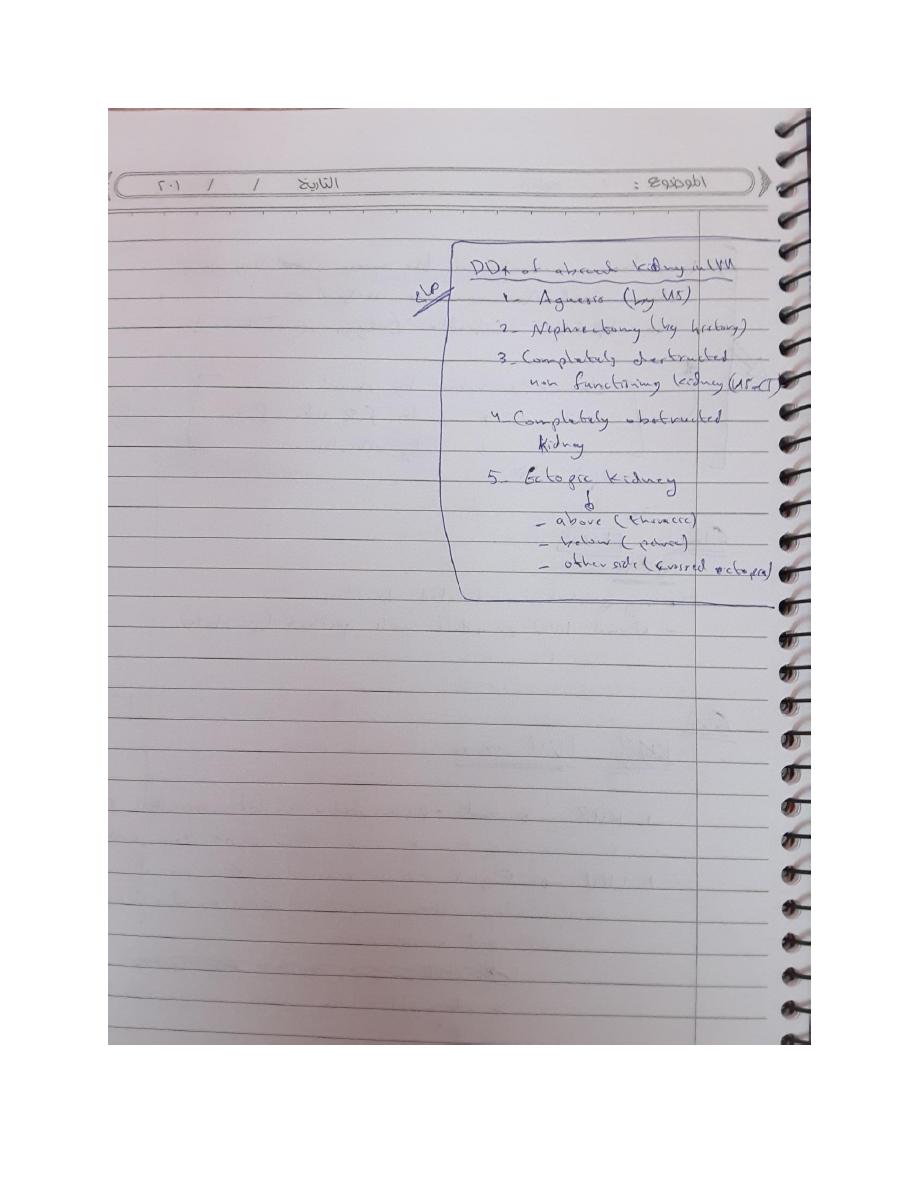 الموضوع : التاريخ / / ٢٠١
DDx of absent kidney in IVU
هام
1- Agnesis (by US)
2- Nephrectomy (by history)
3- Completely destructed
non functioning kidney (US-CT)
4- Completely obstructed
kidney
5- Ectopic kidney
- above (thoracic)
- below (pelvic)
- other side (crossed ectopia)